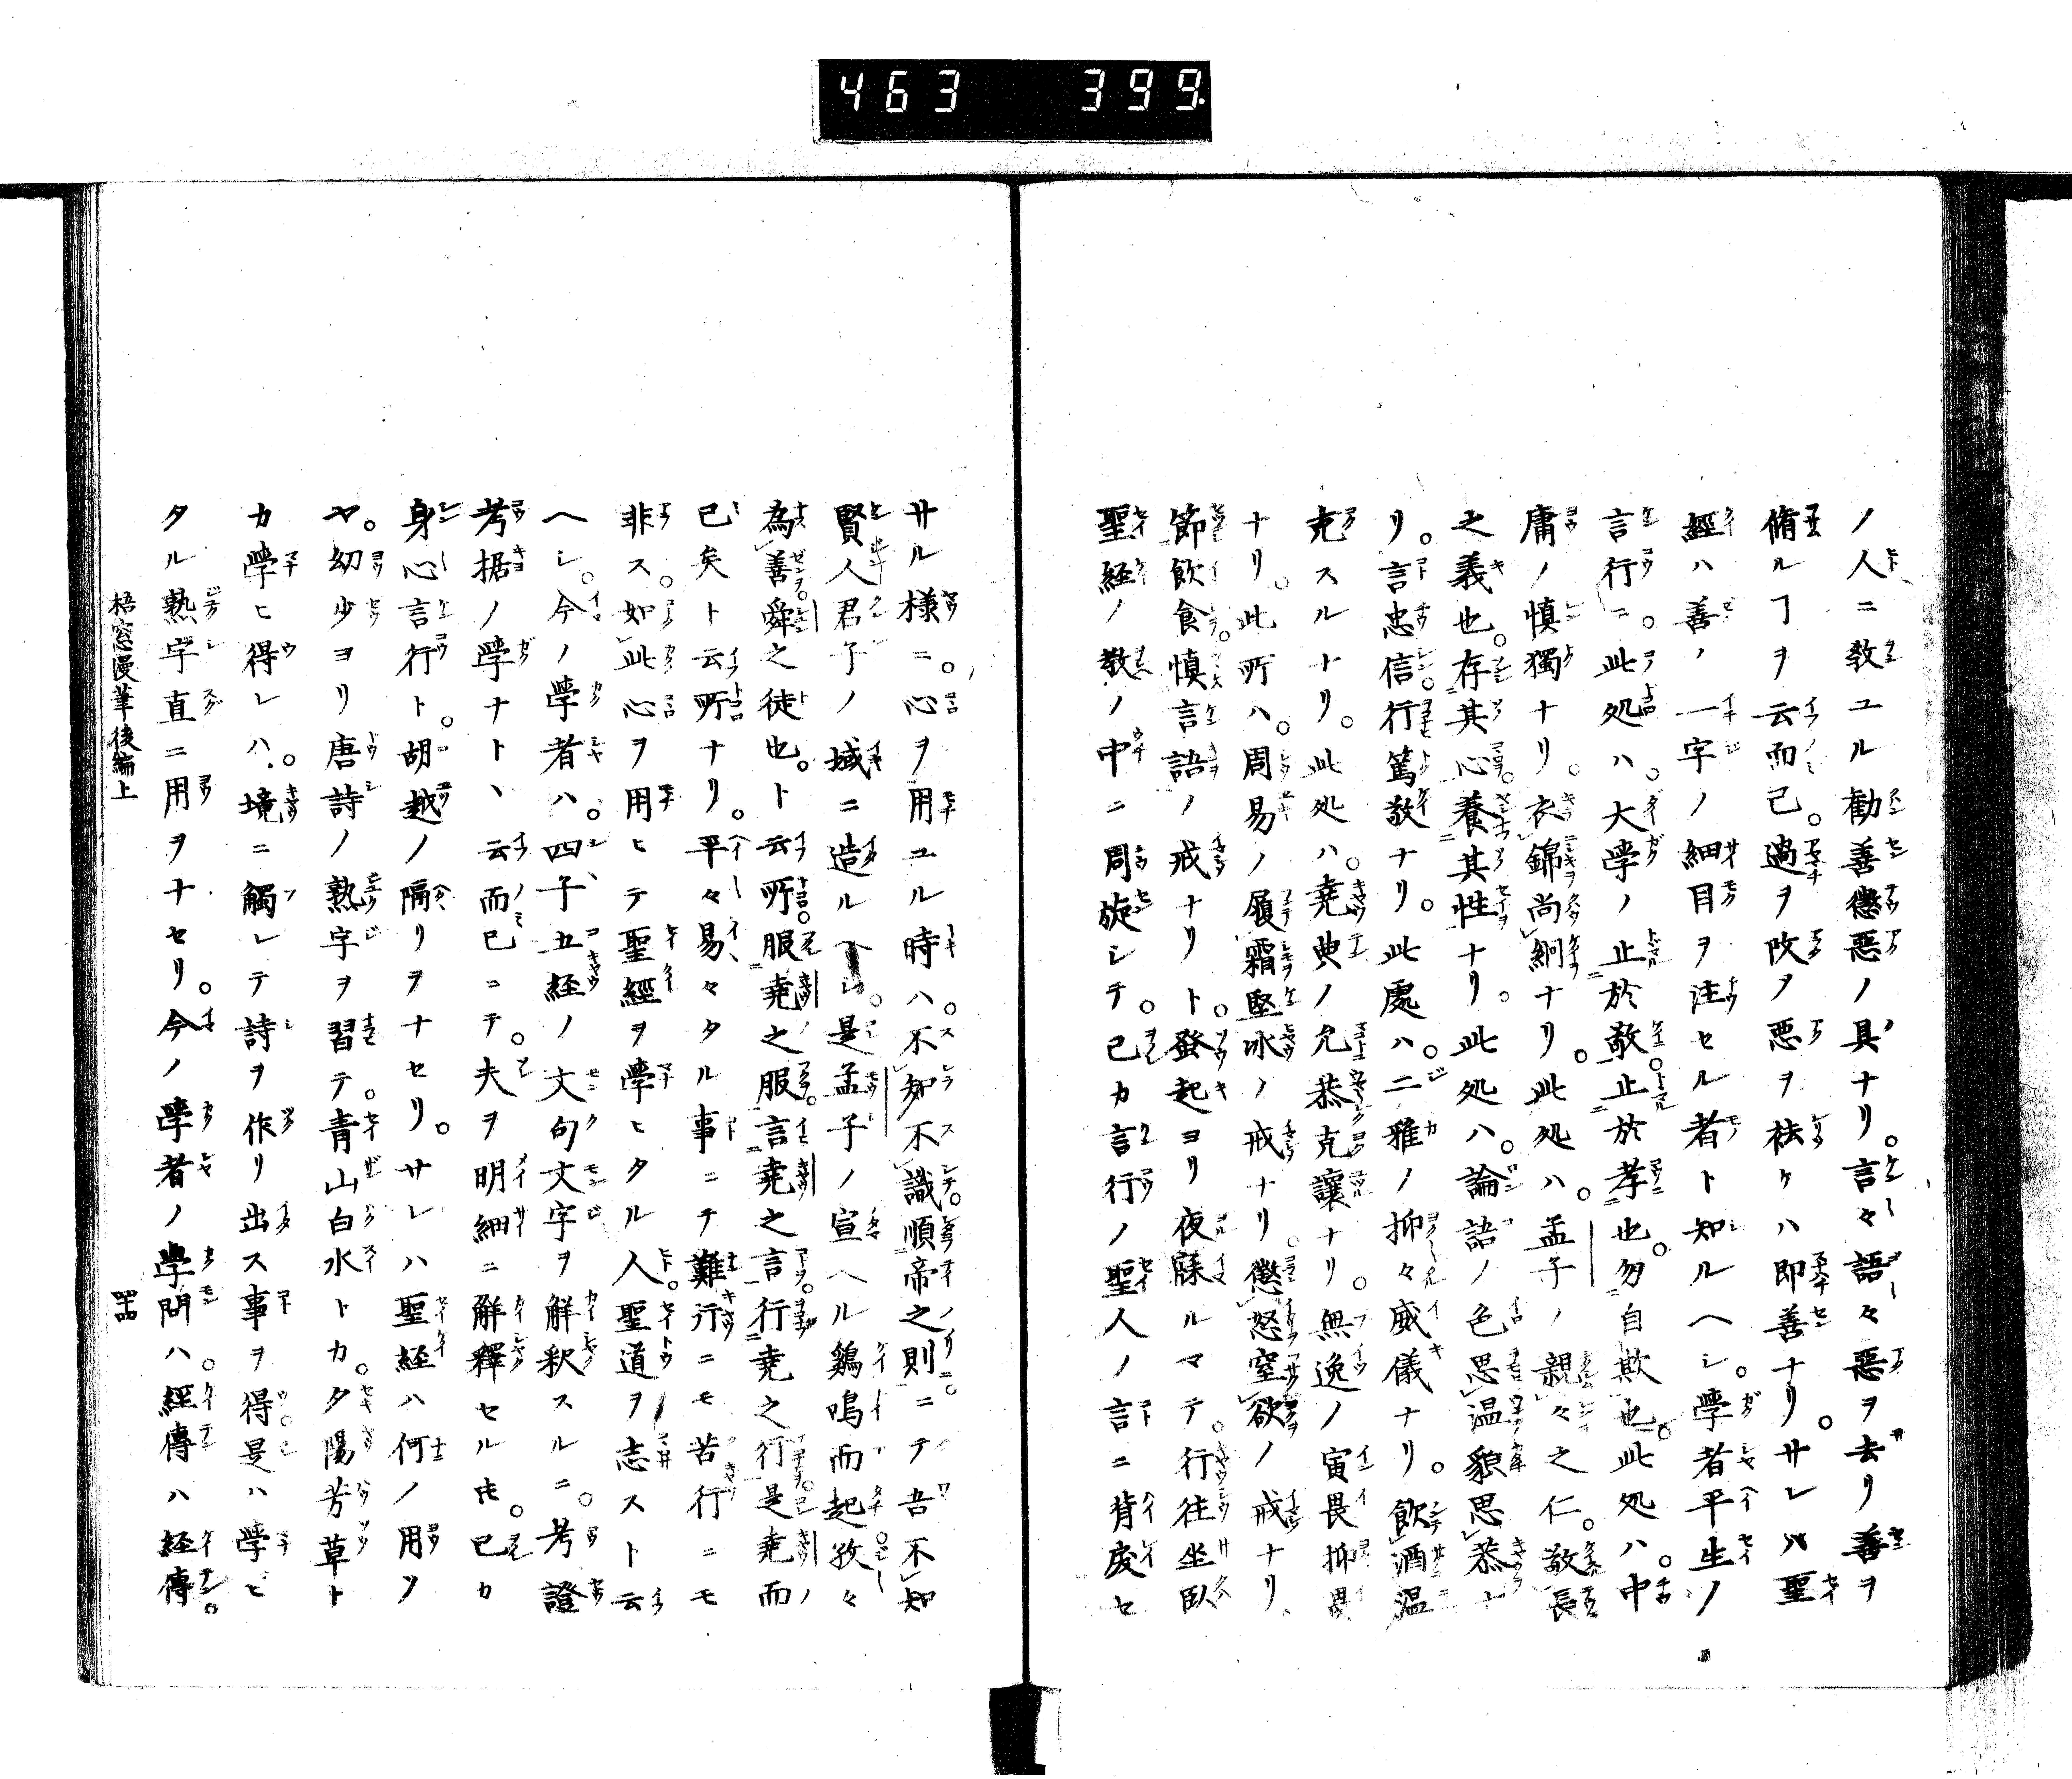 463 399
ノ人ニ教ユル勧善懲惡ノ具ナリ。言々語々惡ヲ去リ善ヲ
脩ルヿヲ云而已。過ヲ改タ悪ヲ袪ケハ即善ナリ。サレハ聖
經ハ善ノ一字ノ細目ヲ注セル者ト知ルヘシ。学者平生ノ
言行ニ。此処ハ。大学ノ止於敬。止於孝也。勿自欺也。此処ハ。中
庸ノ慎獨ナリ。衣錦尚絅ナリ。此処ハ。孟子ノ親々之仁。敬長
之義也。存其心。養其性ナリ。此処ハ。論語ノ色思温貌思恭ナ
リ。言忠信。行篤敬ナリ。此處ハ。二雅ノ抑々威儀ナリ。飲酒温
克スルナリ。此処ハ。堯典ノ允恭克讓ナリ。無逸ノ寅畏抑畏
ナリ。此所ハ。周易ノ履霜堅冰ノ戒ナリ。懲怒窒欲ノ戒ナリ、
節飲食。慎言語ノ戒ナリト。發起ヨリ夜寐ルマテ。行往坐臥
聖経ノ教ノ中ニ周旋シテ。己カ言行ノ聖人ノ言ニ背戾セ
サル様ニ。心ヲ用ユル時ハ。不知不識。順帝之則。ニテ吾不知
賢人君子ノ域ニ造ルヘシ。是孟子ノ宣ヘル鷄鳴而起。孜々
為善。舜之徒也。ト云所。服堯之服。言堯之言。行堯之行。是堯而
已矣ト云所ナリ。平々易々タル事ニテ難行ニモ苦行ニモ
非ス。如此心ヲ用ヒテ聖經ヲ学ヒタル人。聖道ヲ志スト云
ヘシ。今ノ学者ハ。四子五経ノ文句文字ヲ解釈スルニ。考證
考据ノ学ナト、云而已ニテ。夫ヲ明細ニ解釋セル圧。己カ
身心言行ト。胡越ノ隔リヲナセリ。サレハ聖経ハ何ノ用ソ
ヤ。幼少ヨリ唐詩ノ熟字ヲ習テ。青山白水トカ。夕陽芳草ト
カ学ヒ得レハ。境ニ觸レテ詩ヲ作リ出ス事ヲ得。是ハ学ビ
タル熟字直ニ用ヲナセリ。今ノ学者ノ学問ハ。経傳ハ経傳。
梧窓漫筆後編上